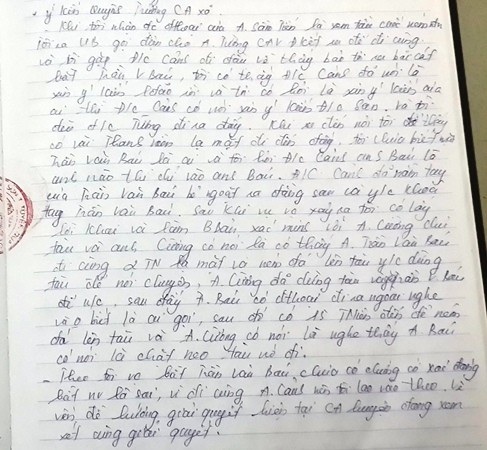 * ý kiến Quyền Trưởng CA xã.
- Khi tôi nhận đc đthoại của A. Sâm Tiến là xem tàu
tôi ra UB gọi điện cho A. Tưởng CAV để đi cùng
và tôi gặp Đ/C Cảnh đi đâu và thấy bảo
bắt Trần V Báu, tôi có thấy Đ/C Cảnh đã nói là
xin ý kiến lãnh đạo và tôi có hỏi là xin ý kiến của
ai thì Đ/C Cảnh có nói xin ý kiến Đ/C và tôi
đèo Đ/C Tưởng đi ra đây. Khi ra đến nơi tôi thấy
có vài Thanh niên lạ mặt đi đến đây, tôi chưa biết
Trần Văn Báu là ai và tôi hỏi Đ/C Cảnh anh Báu là
anh nào thì chỉ vào anh Báu. Đ/C Cảnh đã nắm tay
của Trần Văn Báu bẻ ngoặt ra đằng sau và y/c khóa
tay Trần Văn Báu. Sau khi vụ vc xảy ra tôi có lấy
lời khai và làm BBản xác minh với A. Cường chủ
tàu và anh Cường có nói là có thấy A. Trần Văn Báu
đi cùng 2 TN lạ mặt và ném đá lên tàu y/c dừng
tàu để nói chuyện. A. Cường đã dừng tàu Trần V. Báu
để n/c. sau đấy A. Báu có đthoại đi ra ngoài nghe
và o biết là ai gọi, sau đó có 15 TNiên đến để ném
đá lên tàu và A. Cường có nói là nghe thấy A Báu
có nói là chặt neo tàu nó đi.
- Theo tôi vc bắt Trần Văn Báu chưa có chứng cớ xác đáng
bắt ny là sai, vì đi cùng A. Cảnh nên tôi lao vào theo. Về
vấn đề hướng giải quyết hiện tại CA huyện đang xem
xét cùng giải quyết.